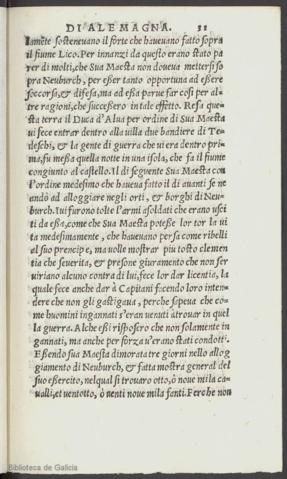 DI ALEMAGNA. 31
lamẽte sosteneuano il forte che haueuano fatto sopra
il fiume Lico. Per innanzi da questo erano stato pa
rer di molti, che Sua Maesta non doueua mettersi so
pra Neuburch, per eßer tanto opportuna ad eßere
soccorsa, & difesa, ma ad eßa parue far cosi per al-
tre ragioni, che succeßero in tale effetto. Resa que
sta terra il Duca d'Alua per ordine di Sua Maesta
ui fece entrar dentro alla uilla due bandiere di Te-
deschi, & la gente di guerra che ui era dentro pri-
ma, fu meßa quella notte in una isola, che fa il fiume
congiunto al castello. Il di seguente Sua Maesta con
l'ordine medesimo che haueua fatto il di auanti se ne
andò ad alloggiare negli orti, & borghi di Neu-
burch. Iui furono tolte l'armi a soldati che erano usci
ti da eßa, come che Sua Maesta poteße lor tor la ui
ta medesimamente, che haueuano persa come ribelli
al suo prencipe, ma uolle mostrar piu tosto clemen
tia che seuerita, & presone giuramento che non ser
uiriano alcuno contra di lui, fece lor dar licentia, la
quale fece anche dar à Capitani facendo loro inten-
dere che non gli gastigaua, perche sapeua che co-
me huomini ingannati s'eran uenuti atrouar in quel
la guerra. Alche eßi risposero che non solamente in
gannati, ma anche per forza u'erano stati condotti.
Eßendo sua Maestà dimorata tre giorni nello allog
giamento di Neuburch, & fatta mostra general del
suo essercito, nel qual si trouaro otto, ò noue mila ca-
ualli, et uentotto, ò uenti noue mila fanti. Perche non
Biblioteca de Galicia